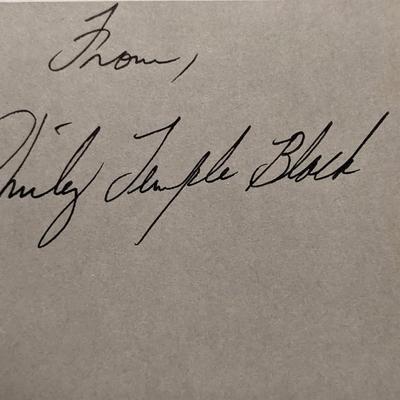 From,
Shirley Temple Black